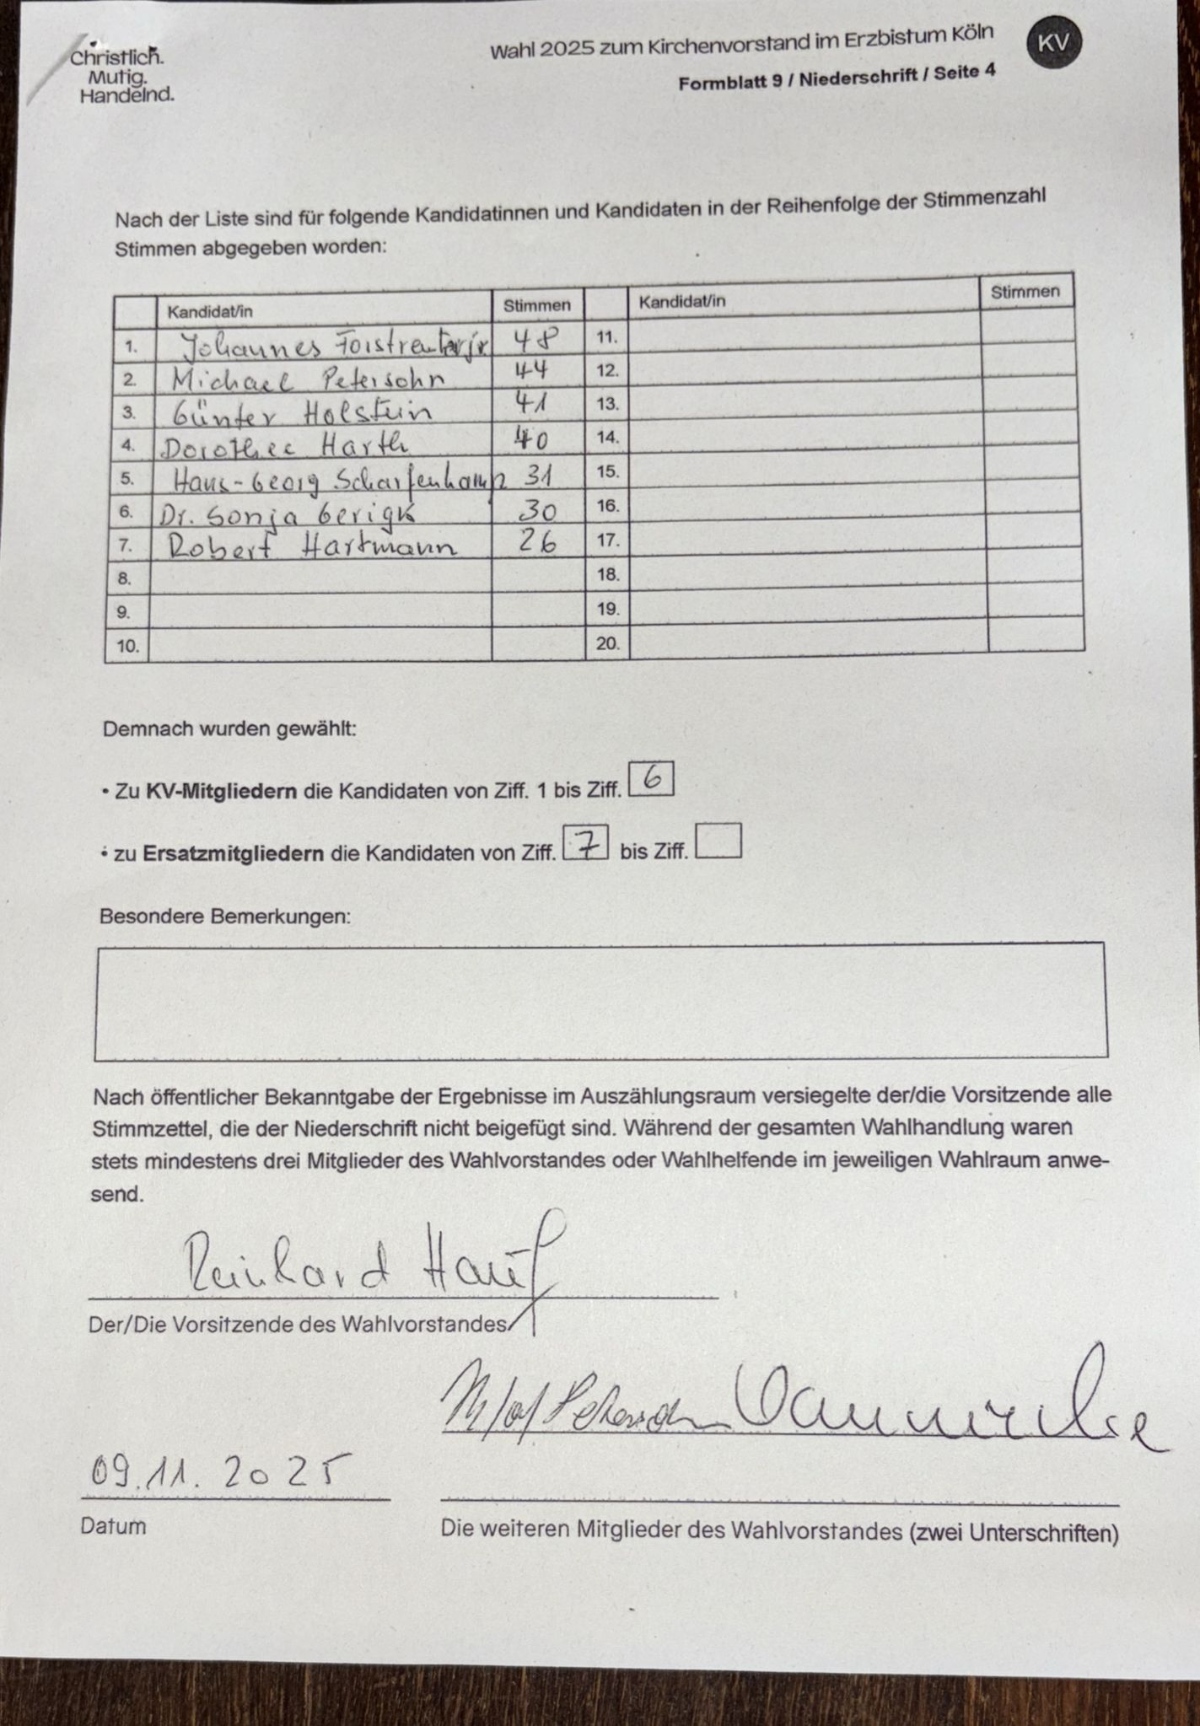 Christlich.
Mutig.
Handelnd.
Wahl 2025 zum Kirchenvorstand im Erzbistum Köln
KV
Formblatt 9 / Niederschrift / Seite 4
Nach der Liste sind für folgende Kandidatinnen und Kandidaten in der Reihenfolge der Stimmenzahl
Stimmen abgegeben worden:
Kandidat/in Stimmen Kandidat/in Stimmen
1. Johannes 48 11.
2. Michael Petersohn 44 12.
3. Günter Holstein 41 13.
4. Dorothee Harth 40 14.
5. Hans-Georg Scharfenkamp 31 15.
6. Dr. Sonja Gerigk 30 16.
7. Robert Hartmann 26 17.
8. 18.
9. 19.
10. 20.
Demnach wurden gewählt:
• Zu KV-Mitgliedern die Kandidaten von Ziff. 1 bis Ziff. 6
• zu Ersatzmitgliedern die Kandidaten von Ziff. 7 bis Ziff.
Besondere Bemerkungen:
Nach öffentlicher Bekanntgabe der Ergebnisse im Auszählungsraum versiegelte der/die Vorsitzende alle
Stimmzettel, die der Niederschrift nicht beigefügt sind. Während der gesamten Wahlhandlung waren
stets mindestens drei Mitglieder des Wahlvorstandes oder Wahlhelfende im jeweiligen Wahlraum anwe-
send.
Reinhard Hauf
Der/Die Vorsitzende des Wahlvorstandes
09.11.2025
Datum
Die weiteren Mitglieder des Wahlvorstandes (zwei Unterschriften)